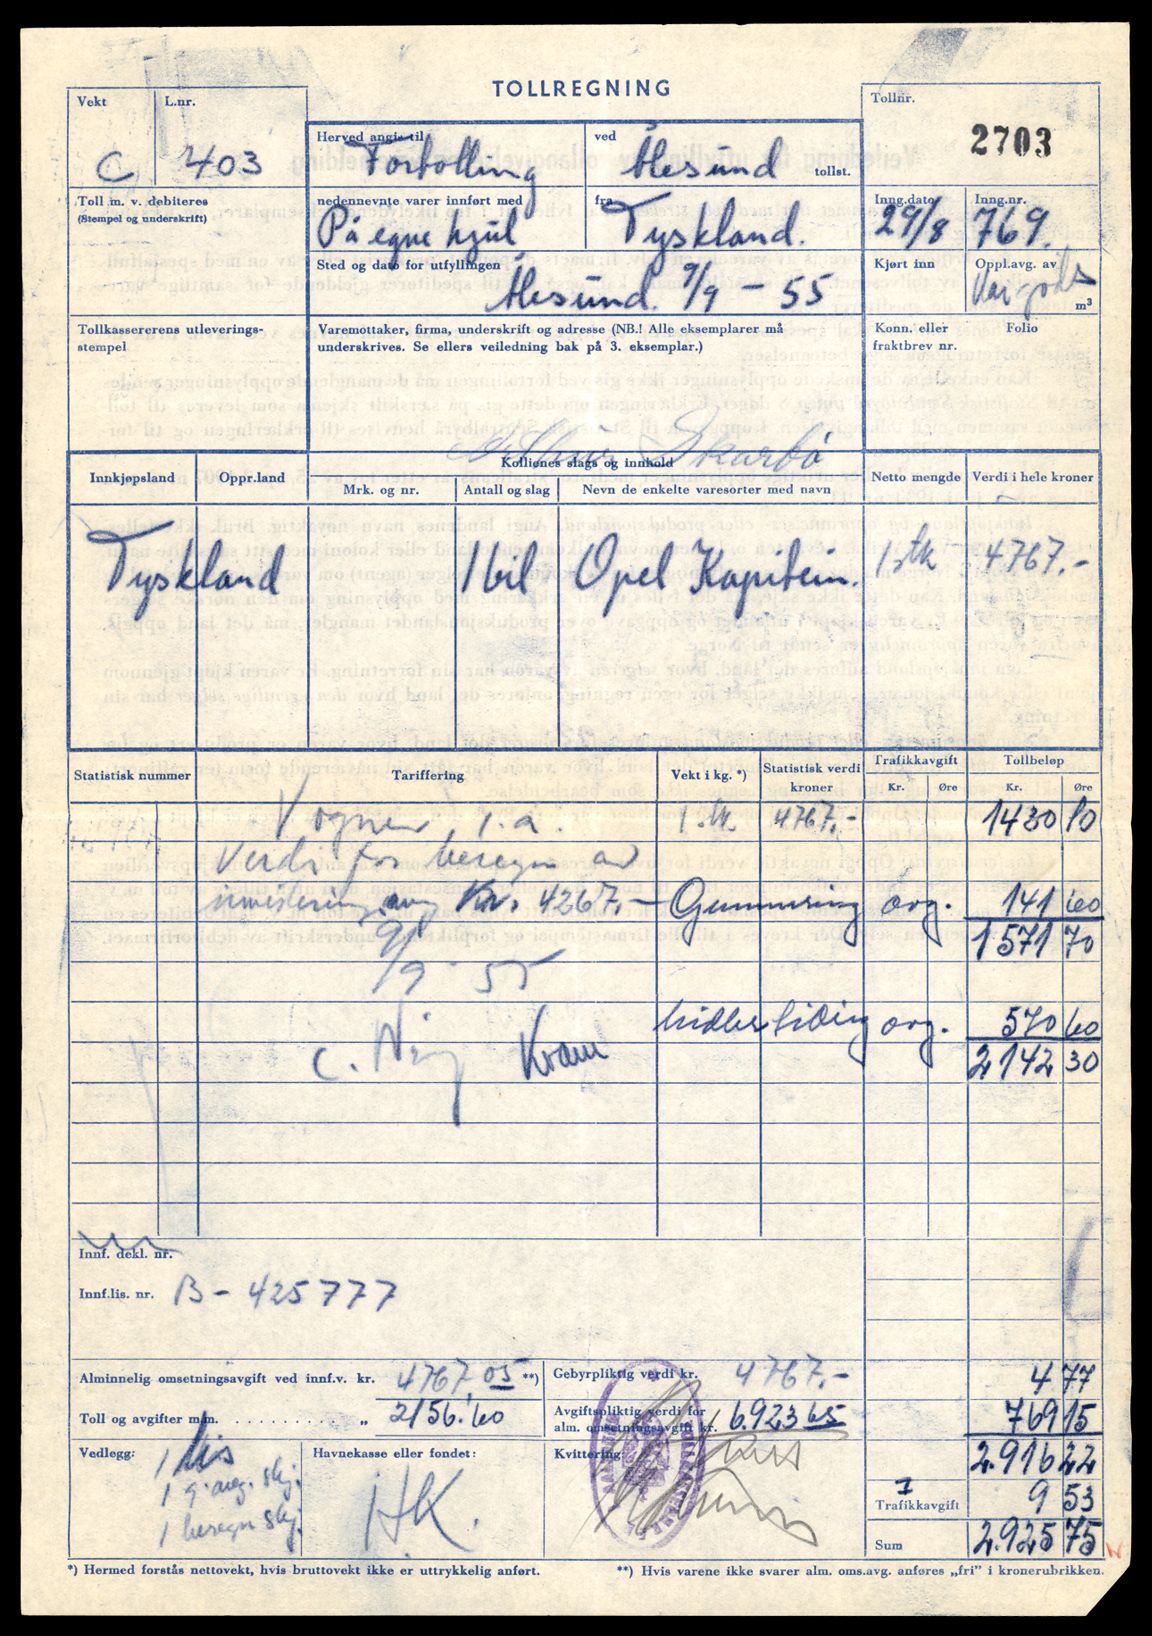 TOLLREGNING
Vekt
L.nr.
C 403
Herved angis til
Fortolling
ved
Ålesund
tollst.
Tollnr.
2703
Toll m. v. debiteres
(Stempel og underskrift)
nedennevnte varer innført med
På egne hjul
fra
Tyskland.
Inng.dato
29/8
Inng.nr.
769.
Sted og dato for utfyllingen
Ålesund. 9/9 - 55
Kjørt inn
Oppl.avg. av
m³
Tollkassererens utleverings-
stempel
Varemottaker, firma, underskrift og adresse (NB.! Alle eksemplarer må
underskrives. Se ellers veiledning bak på 3. eksemplar.)
Konn. eller
fraktbrev nr.
Folio
Arthur Skarbø
Innkjøpsland
Oppr.land
Kollienes slags og innhold
Mrk. og nr.
Antall og slag
Nevn de enkelte varesorter med navn
Netto mengde
Verdi i hele kroner
Tyskland 1 bil Opel Kaptein. 1 stk 4767.-
Statistisk nummer
Tariffering
Vekt i kg. *)
Statistisk verdi
kroner
Trafikkavgift
Kr. Øre
Tollbeløp
Kr. Øre
Vogner, i.a. 1 stk. 4767.- 1430 10
Verdi for beregn av
investering avg Kr. 4267.- Gummiring avg. 141 60
1571 70
9/9 - 55
avg. 570 60
2142 30
Innf. dekl. nr.
Innf.lis. nr. B - 425777
Alminnelig omsetningsavgift ved innf.v. kr. 4767,05 **)
Gebyrpliktig verdi kr. 4767.- 4 77
Toll og avgifter m.m. . . . . . . . . . . . . . „ 2156.60
Avgiftspliktig verdi for
alm. omsetningsavgift kr. 6.923 65 769 15
Vedlegg:
1 lis
1 g. avg. skj.
1 beregn skj.
Havnekasse eller fondet:
HK.
Kvittering:
2.916 22
Trafikkavgift 9 53
Sum 2.925 75
*) Hermed forstås nettovekt, hvis bruttovekt ikke er uttrykkelig anført.
**) Hvis varene ikke svarer alm. oms.avg. anføres „fri” i kronerubrikken.